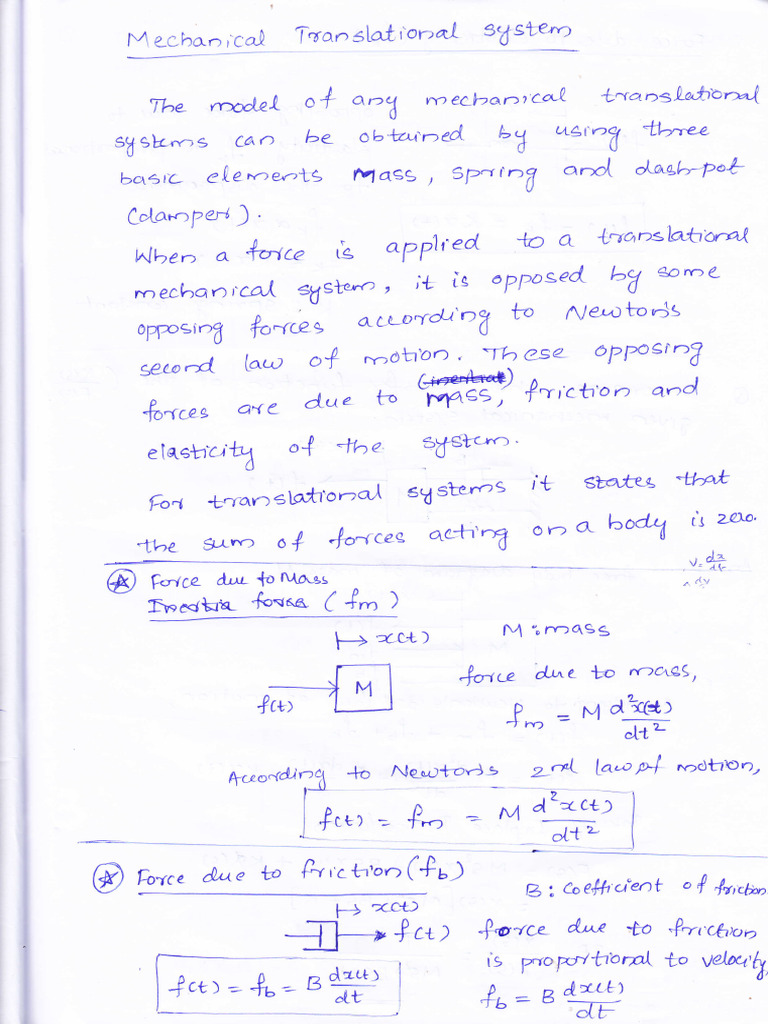 Mechanical Translational system
The model of any mechanical translational
systems can be obtained by using three
basic elements Mass, spring and dash-pot
(damper).
When a force is applied to a translational
mechanical system, it is opposed by some
opposing forces according to Newton's
second law of motion. These opposing
forces are due to mass, friction and
elasticity of the system.
For translational systems it states that
the sum of forces acting on a body is zero.
v = dx/dt
Force due to Mass
Inertia force (fm)
x(t)
M : mass
f(t)
M
force due to mass,
fm = M d²x(t)/dt²
According to Newton's 2nd law of motion,
f(t) = fm = M d²x(t)/dt²
Force due to friction (fb)
B : Coefficient of friction
x(t)
f(t)
force due to friction
is proportional to velocity,
f(t) = fb = B dx(t)/dt
fb = B dx(t)/dt